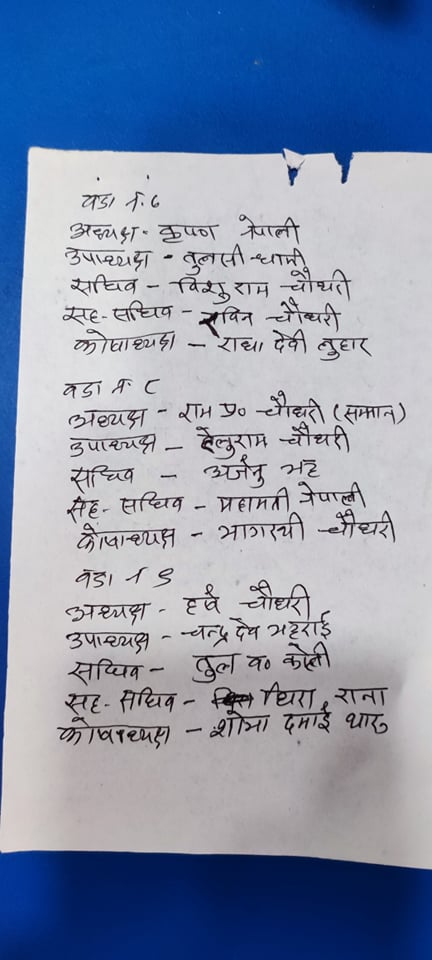 वडा नं. ७
अध्यक्ष - कृष्ण नेपाली
उपाध्यक्ष - तुलसी धामी
सचिव - विशुराम चौधरी
सह-सचिव - रविन चौधरी
कोषाध्यक्ष - राधा देवी लुहार
वडा नं. ८
अध्यक्ष - राम प्र० चौधरी (समान)
उपाध्यक्ष - हेलुराम चौधरी
सचिव - अर्जुन भट्ट
सह- सचिव - नेपाली
कोषाध्यक्ष - भागरथी चौधरी
वडा नं ९
अध्यक्ष - हर्ष चौधरी
उपाध्यक्ष - चन्द्र देव भट्टराई
सचिव - तुल ब० कोली
सह- सचिव - धिरा राना
कोषाध्यक्ष - शोभा दमाई थारु